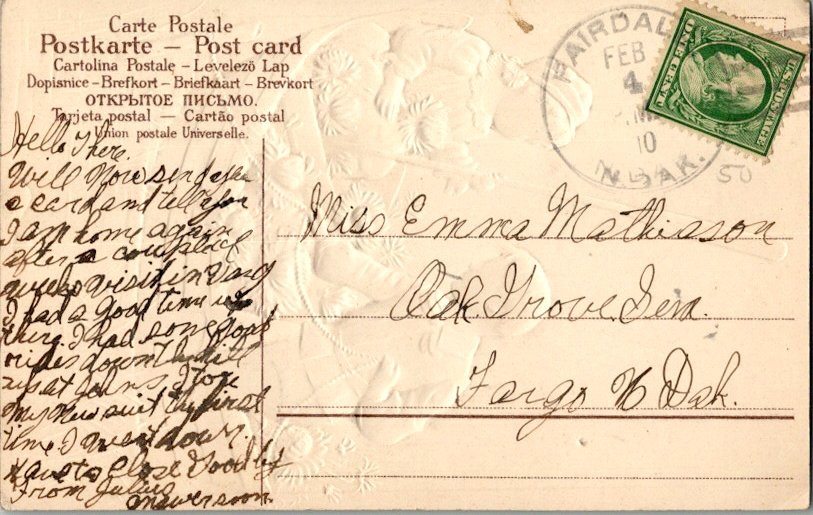 Carte Postale
Postkarte – Post card
Cartolina Postale – Levelező Lap
Dopisnice – Brefkort – Briefkaart – Brevkort
ОТКРЫТОЕ ПИСЬМО.
Tarjeta postal — Cartão postal
Union postale Universelle.
FAIRDAL
FEB
4
10
N. DAK.
U.S. POSTAGE
ONE CENT
50
Hello There.
Will Now send you
a card and tell you
I am home again
after a couple
weeks visit in
I had a good time up
there. I had some
rides down the hill
at I tore
My New suit the first
time I went down.
Have to Close Good by
From Julius
Answer soon.
Miss Emma Mathiason
Oak Grove Sem.
Fargo N Dak.